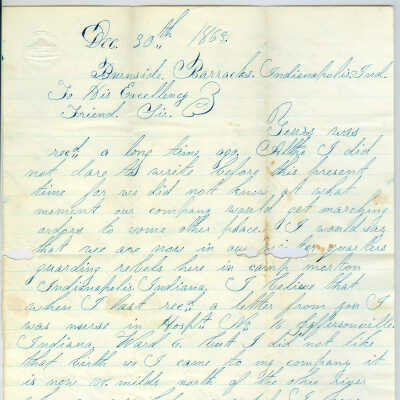 Dec. 30th 1863.
Burnside Barracks. Indianapolis Ind.
To His Excellency
Friend. Sir.
Yours was
recd a long time ago. Altho I did
not dare to write before this present
time for we did not know at what
moment our company would get marching
orders to some other place. I would say
that we are now in our winter quarters
guarding rebels here in camp morton
Indianapolis Indiana. I believe that
when I last recd a letter from you I
was nurse in Hospt. No. Jeffersonville
Indiana, Ward 6. but I did not like
that birth so I came to my company it
is now miles north of the ohio river